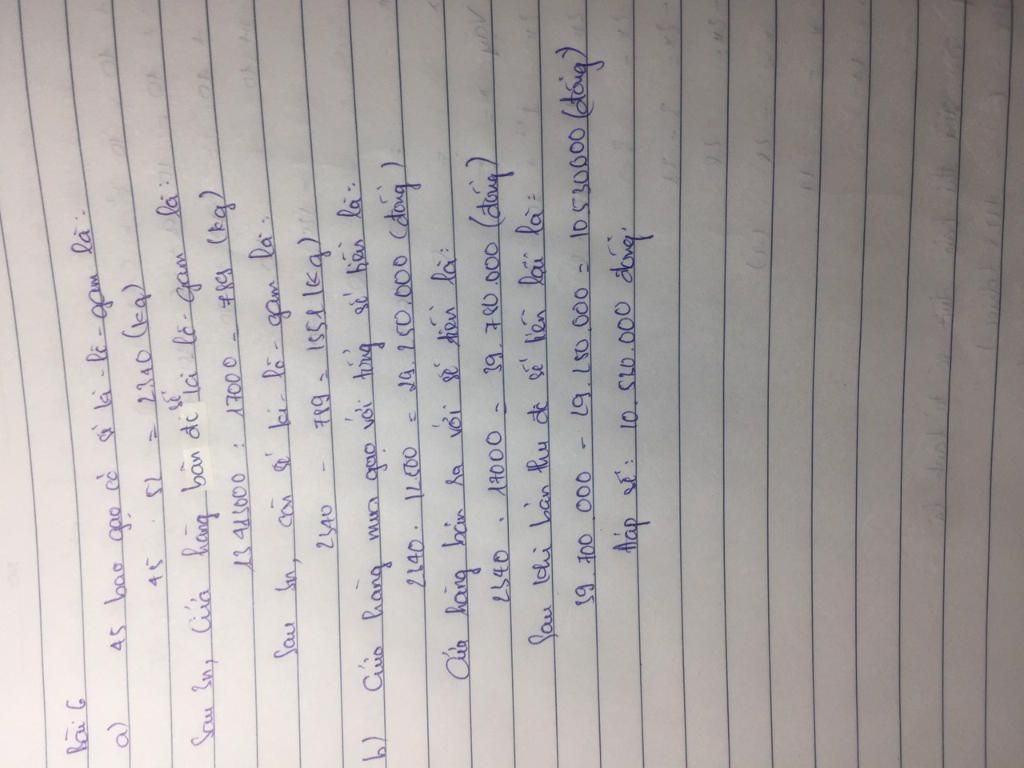 Bài 6
a) 45 bao gạo có số ki-lô-gam là:
45 . 52 = 2340 (kg)
Sau 3n, cửa hàng bán đc số ki lô-gam là:
13413000 : 17000 = 789 (kg)
Sau 3n, còn số ki-lô-gam là:
2340 - 789 = 1551 (kg)
b) Cửa hàng mua gạo với tổng số tiền là:
2340 . 12500 = 29.250.000 (đồng)
Cửa hàng bán ra với số tiền là:
2340 . 17000 = 39.780.000 (đồng)
Sau khi bán thu đc số tiền lãi là:
39 780 000 - 29.250.000 = 10.530.000 (đồng)
Đáp số: 10.530.000 đồng.